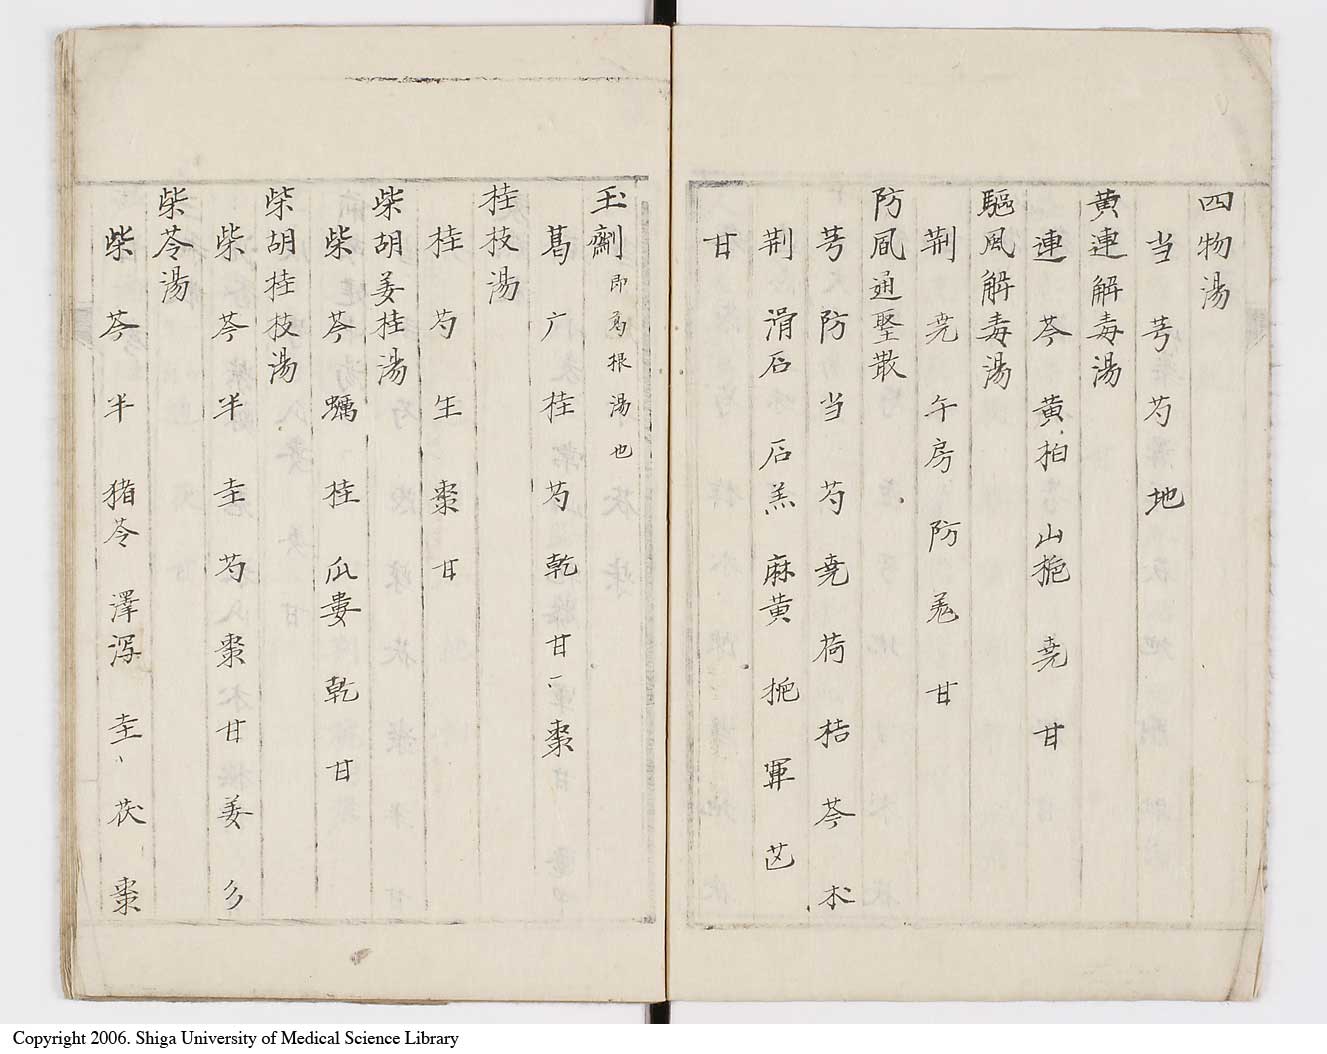 四物湯
当 芎 芍 地
黄連解毒湯
連 芩 黄柏 山梔 尭 甘
駆風解毒湯
荆 尭 午房 防 羌 甘
防風通聖散
芎 防 当 芍 尭 荷 桔 芩 朮
荆 滑石 石羔 麻黄 梔 軍 芒
甘
玉劑 即葛根湯也
葛 广 桂 芍 乾 甘 棗
桂枝湯
桂 芍 生 棗 甘
柴胡姜桂湯
柴 芩 蠣 桂 瓜蔞 乾 甘
柴胡桂枝湯
柴 芩 半 圭 芍 棗 甘 姜 彡
柴苓湯
柴 芩 半 猪苓 澤瀉 圭 茯 棗
Copyright 2006. Shiga University of Medical Science Library